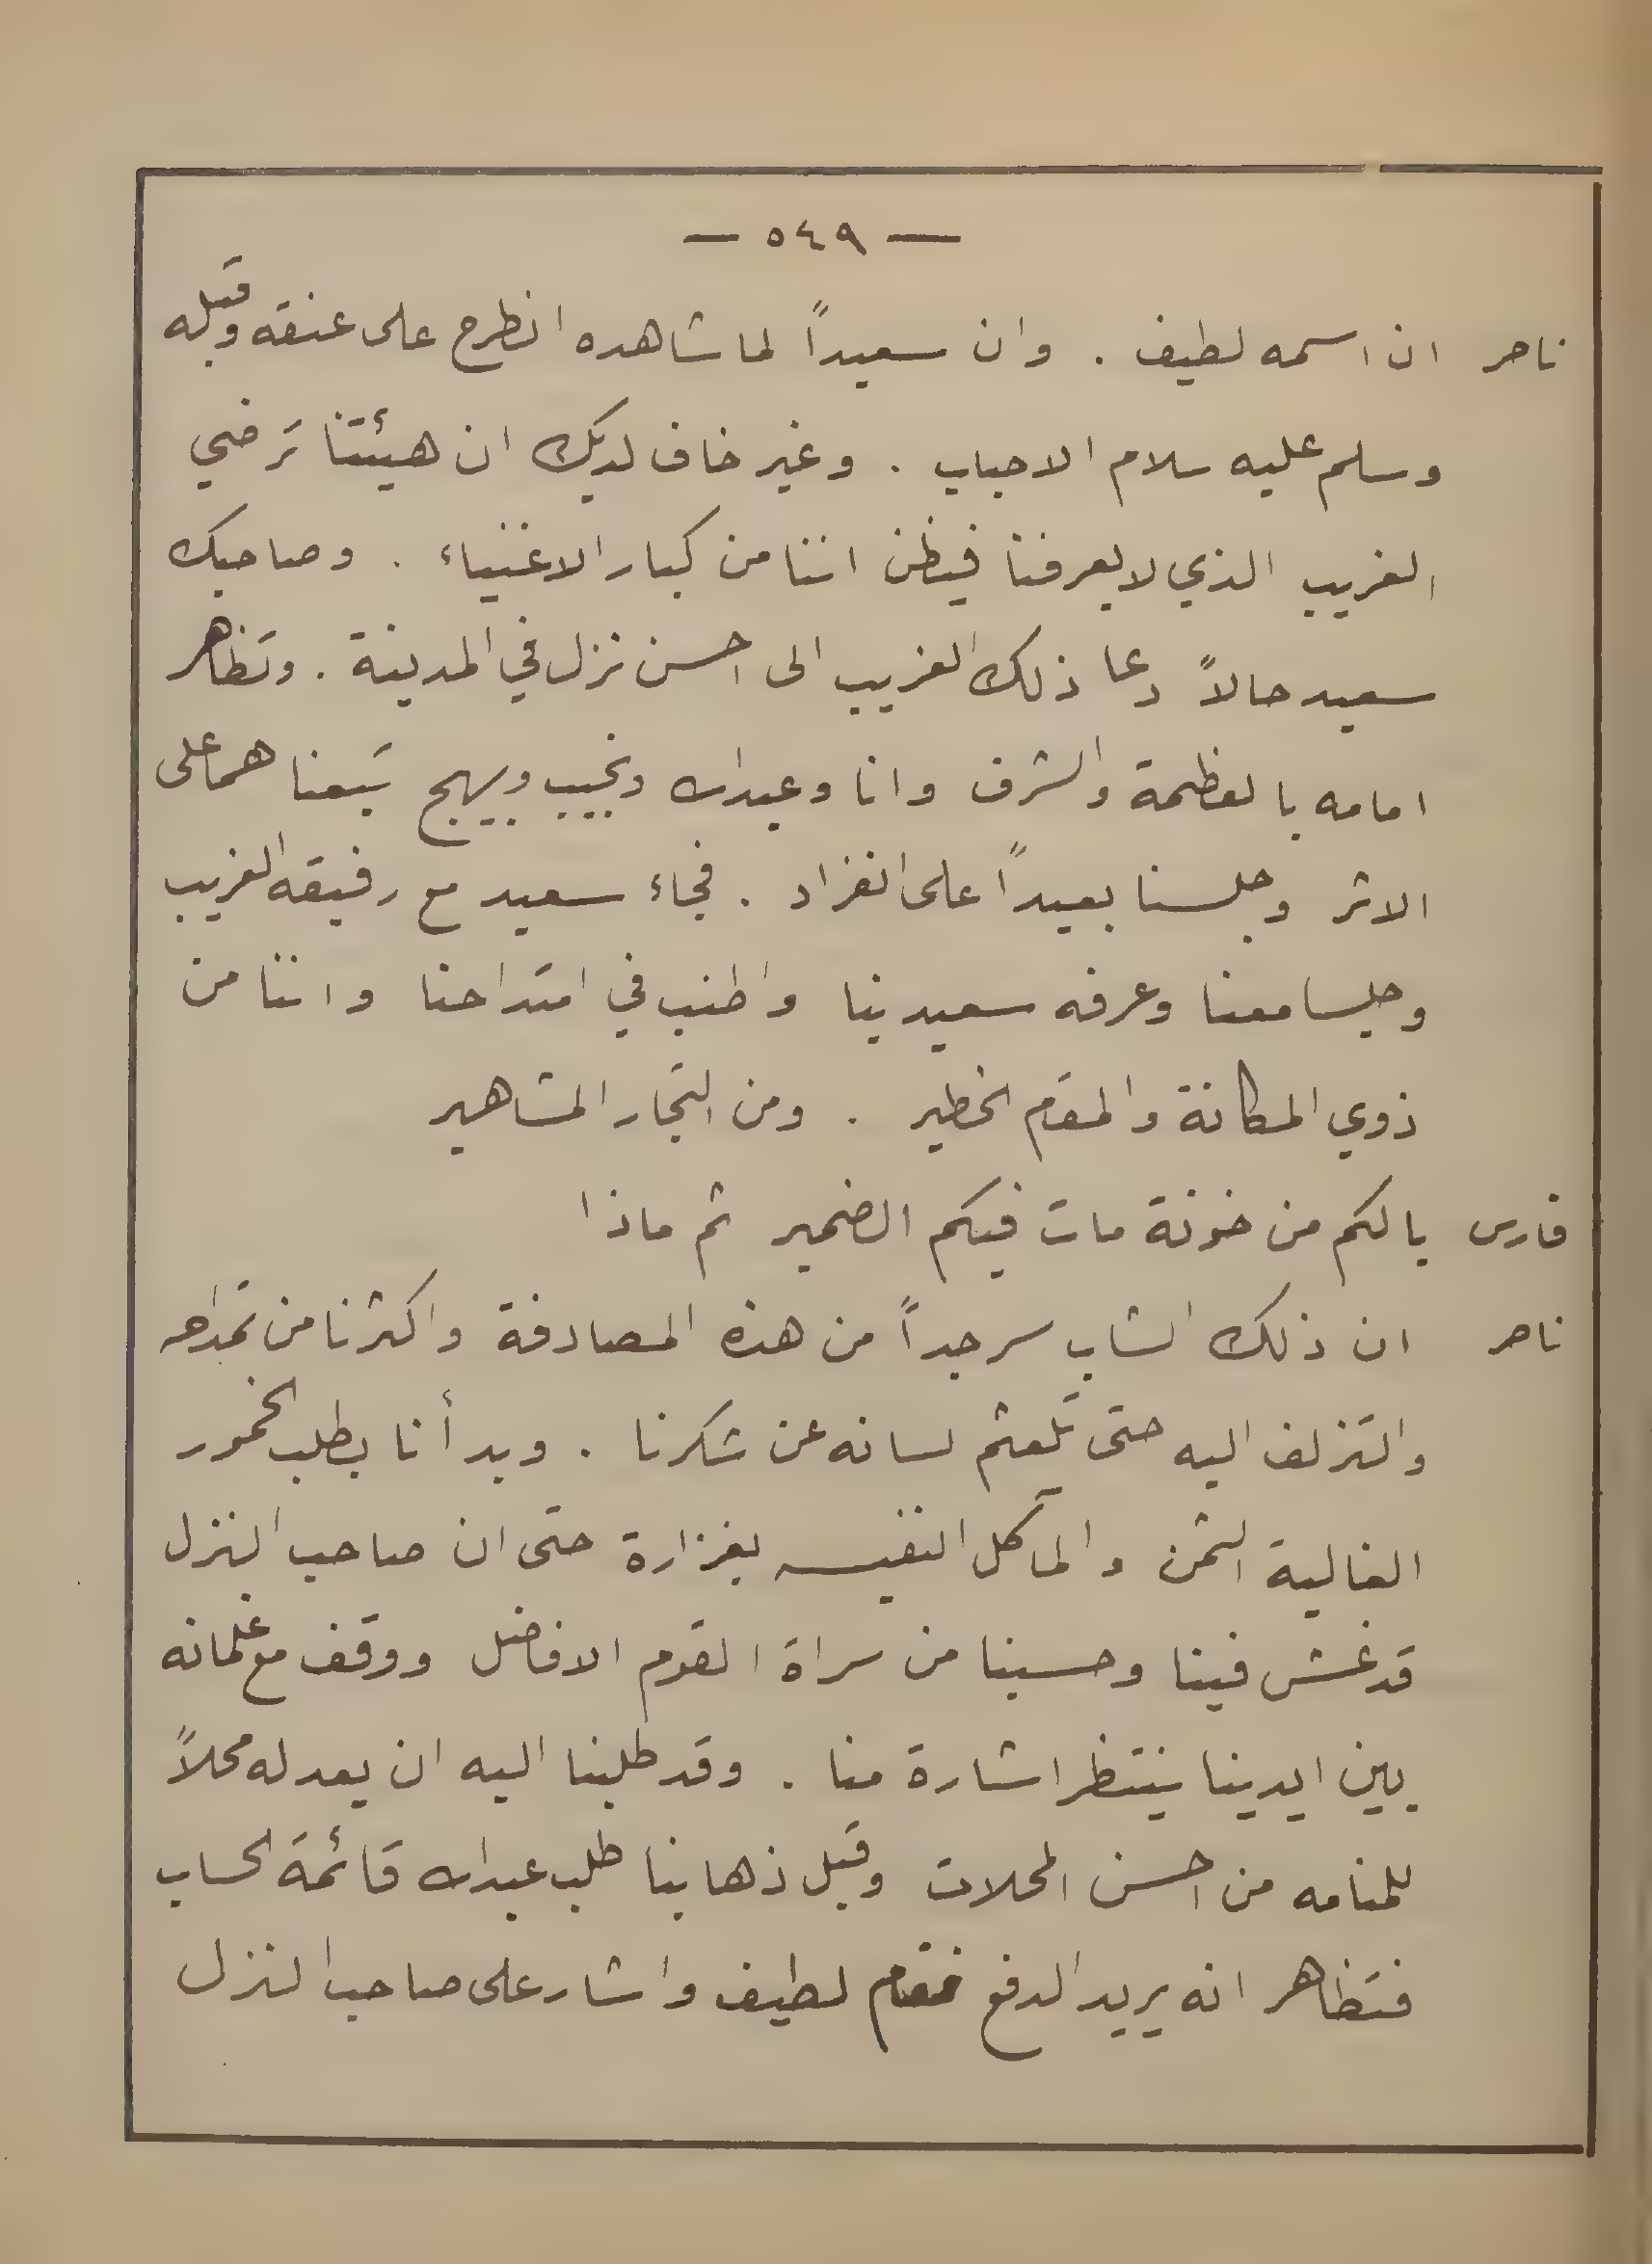 — ٥٤٩ —
ناصر ان اسمه لطيف . وان سعيداً لما شاهده انطرح على عنقه وقبله
وسلم عليه سلام الاحباب . وغير خاف لديك ان هيئتنا ترضي
الغريب الذي لا يعرفنا فيظن اننا من كبار الاغنياء . وصاحبك
سعيد حالاً دعا ذلك الغريب الى احسن نزل في المدينة . وتظاهر
امامه بالعظمة والشرف وانا وعبدالله ونجيب وبهيج تبعناهما على
الاثر وجلسنا بعيداً على انفراد . فجاء سعيد مع رفيقه الغريب
وجلسا معنا وعرفه سعيد بنا واطنب في امتداحنا واننا من
ذوي المكانة والمقام الخطير . ومن التجار المشاهير
فارس يا لكم من خونة مات فيكم الضمير ثم ماذا
ناصر ان ذلك الشاب سر جداً من هذه المصادفة واكثرنا من تمداحه
والتزلف اليه حتى تلعثم لسانه عن شكرنا . وبدأنا بطلب الخمور
الغالية الثمن والمآكل النفيسه بغزارة حتى ان صاحب النزل
قد غش فينا وحسبنا من سراة القوم الافاضل ووقف مع غلمانه
بين ايدينا ينتظر اشارة منا . وقد طلبنا اليه ان يعد له محلاً
للمنامه من احسن المحلات وقبل ذهابنا طلب عبدالله قائمة الحساب
فتظاهر انه يريد الدفع فقام لطيف واشار على صاحب النزل